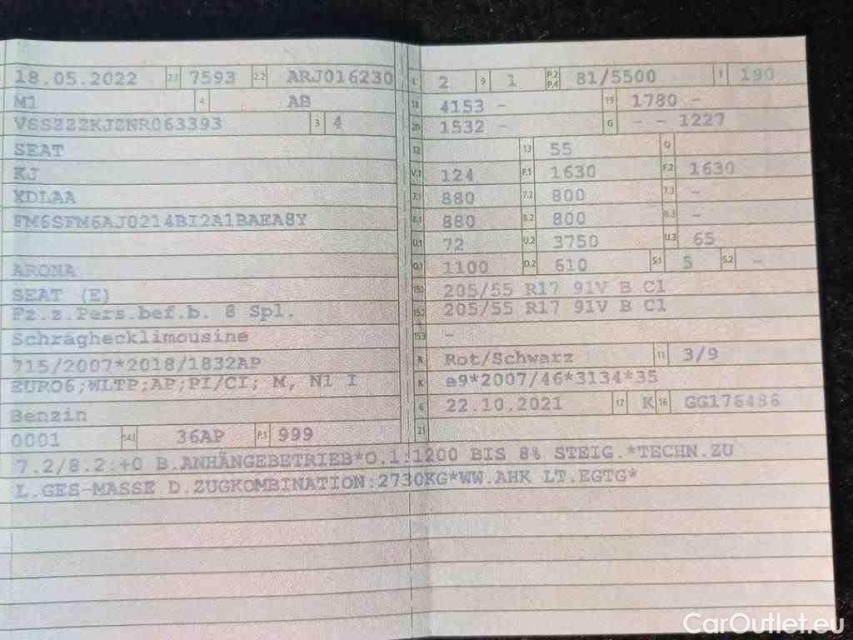 18.05.2022 2.1 7593 2.2 ARJ016230
M1 4 AB
VSSZZZKJZNR063393 3 4
SEAT
KJ
XDLAA
FM6SFM6AJ0214BI2A1BAEA8Y
ARONA
SEAT (E)
Fz.z.Pers.bef.b. 8 Spl.
Schräghecklimousine
715/2007*2018/1832AP
EURO6;WLTP;AP;PI/CI; M, N1 I
Benzin
0001 14.1 36AP P.1 999
L 2 9 1 P.2 P.4 81/5500 T 190
18 4153 - 19 1780 -
20 1532 - G - - 1227
12 13 55 Q
V.7 124 F.1 1630 F.2 1630
7.1 880 7.2 800 7.3 -
8.1 880 8.2 800 8.3 -
U.1 72 U.2 3750 U.3 65
O.1 1100 O.2 610 S.1 5 S.2 -
15.1 205/55 R17 91V B C1
15.2 205/55 R17 91V B C1
15.3 -
R Rot/Schwarz 11 3/9
K e9*2007/46*3134*35
6 22.10.2021 17 K 16 GG176486
21
7.2/8.2:+0 B.ANHÄNGEBETRIEB*O.1:1200 BIS 8% STEIG.*TECHN.ZU
L.GES-MASSE D.ZUGKOMBINATION:2730KG*WW.AHK LT.EGTG*
CarOutlet.eu